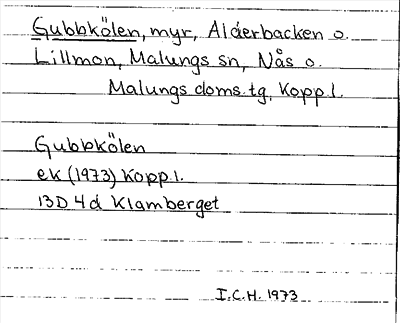 Gubbkölen, myr, Alderbacken o.
Lillmon, Malungs sn, Nås o.
Malungs doms.tg, Koppl.
Gubbkölen
ek (1973) Koppl.
13D 4d Klamberget
I.C.H. 1973